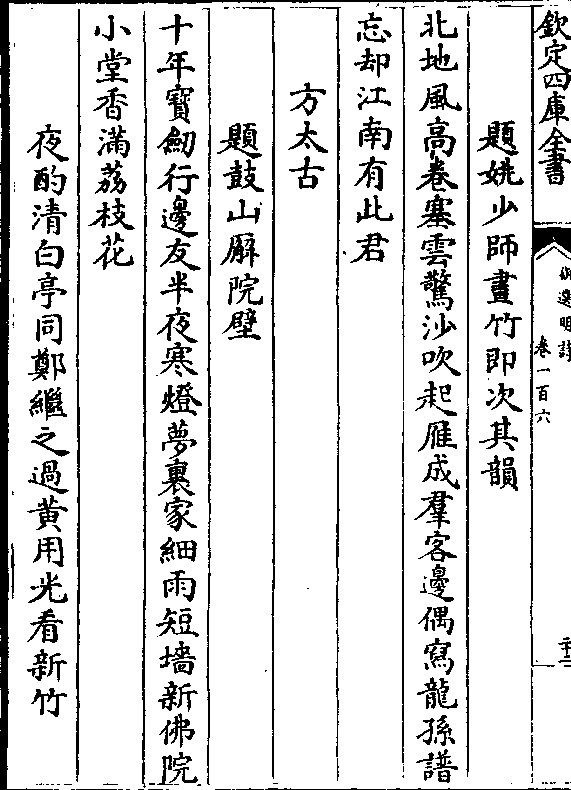 欽定四庫全書
御選明詩
卷一百六
二十二
題姚少師畫竹即次其韻
北地風高卷塞雲驚沙吹起雁成羣客邊偶寫龍孫譜
忘却江南有此君
方太古
題鼓山廨院壁
十年寶劒行邊友半夜寒燈夢裏家細雨短墻新佛院
小堂香滿荔枝花
夜酌清白亭同鄭繼之過黄用光看新竹